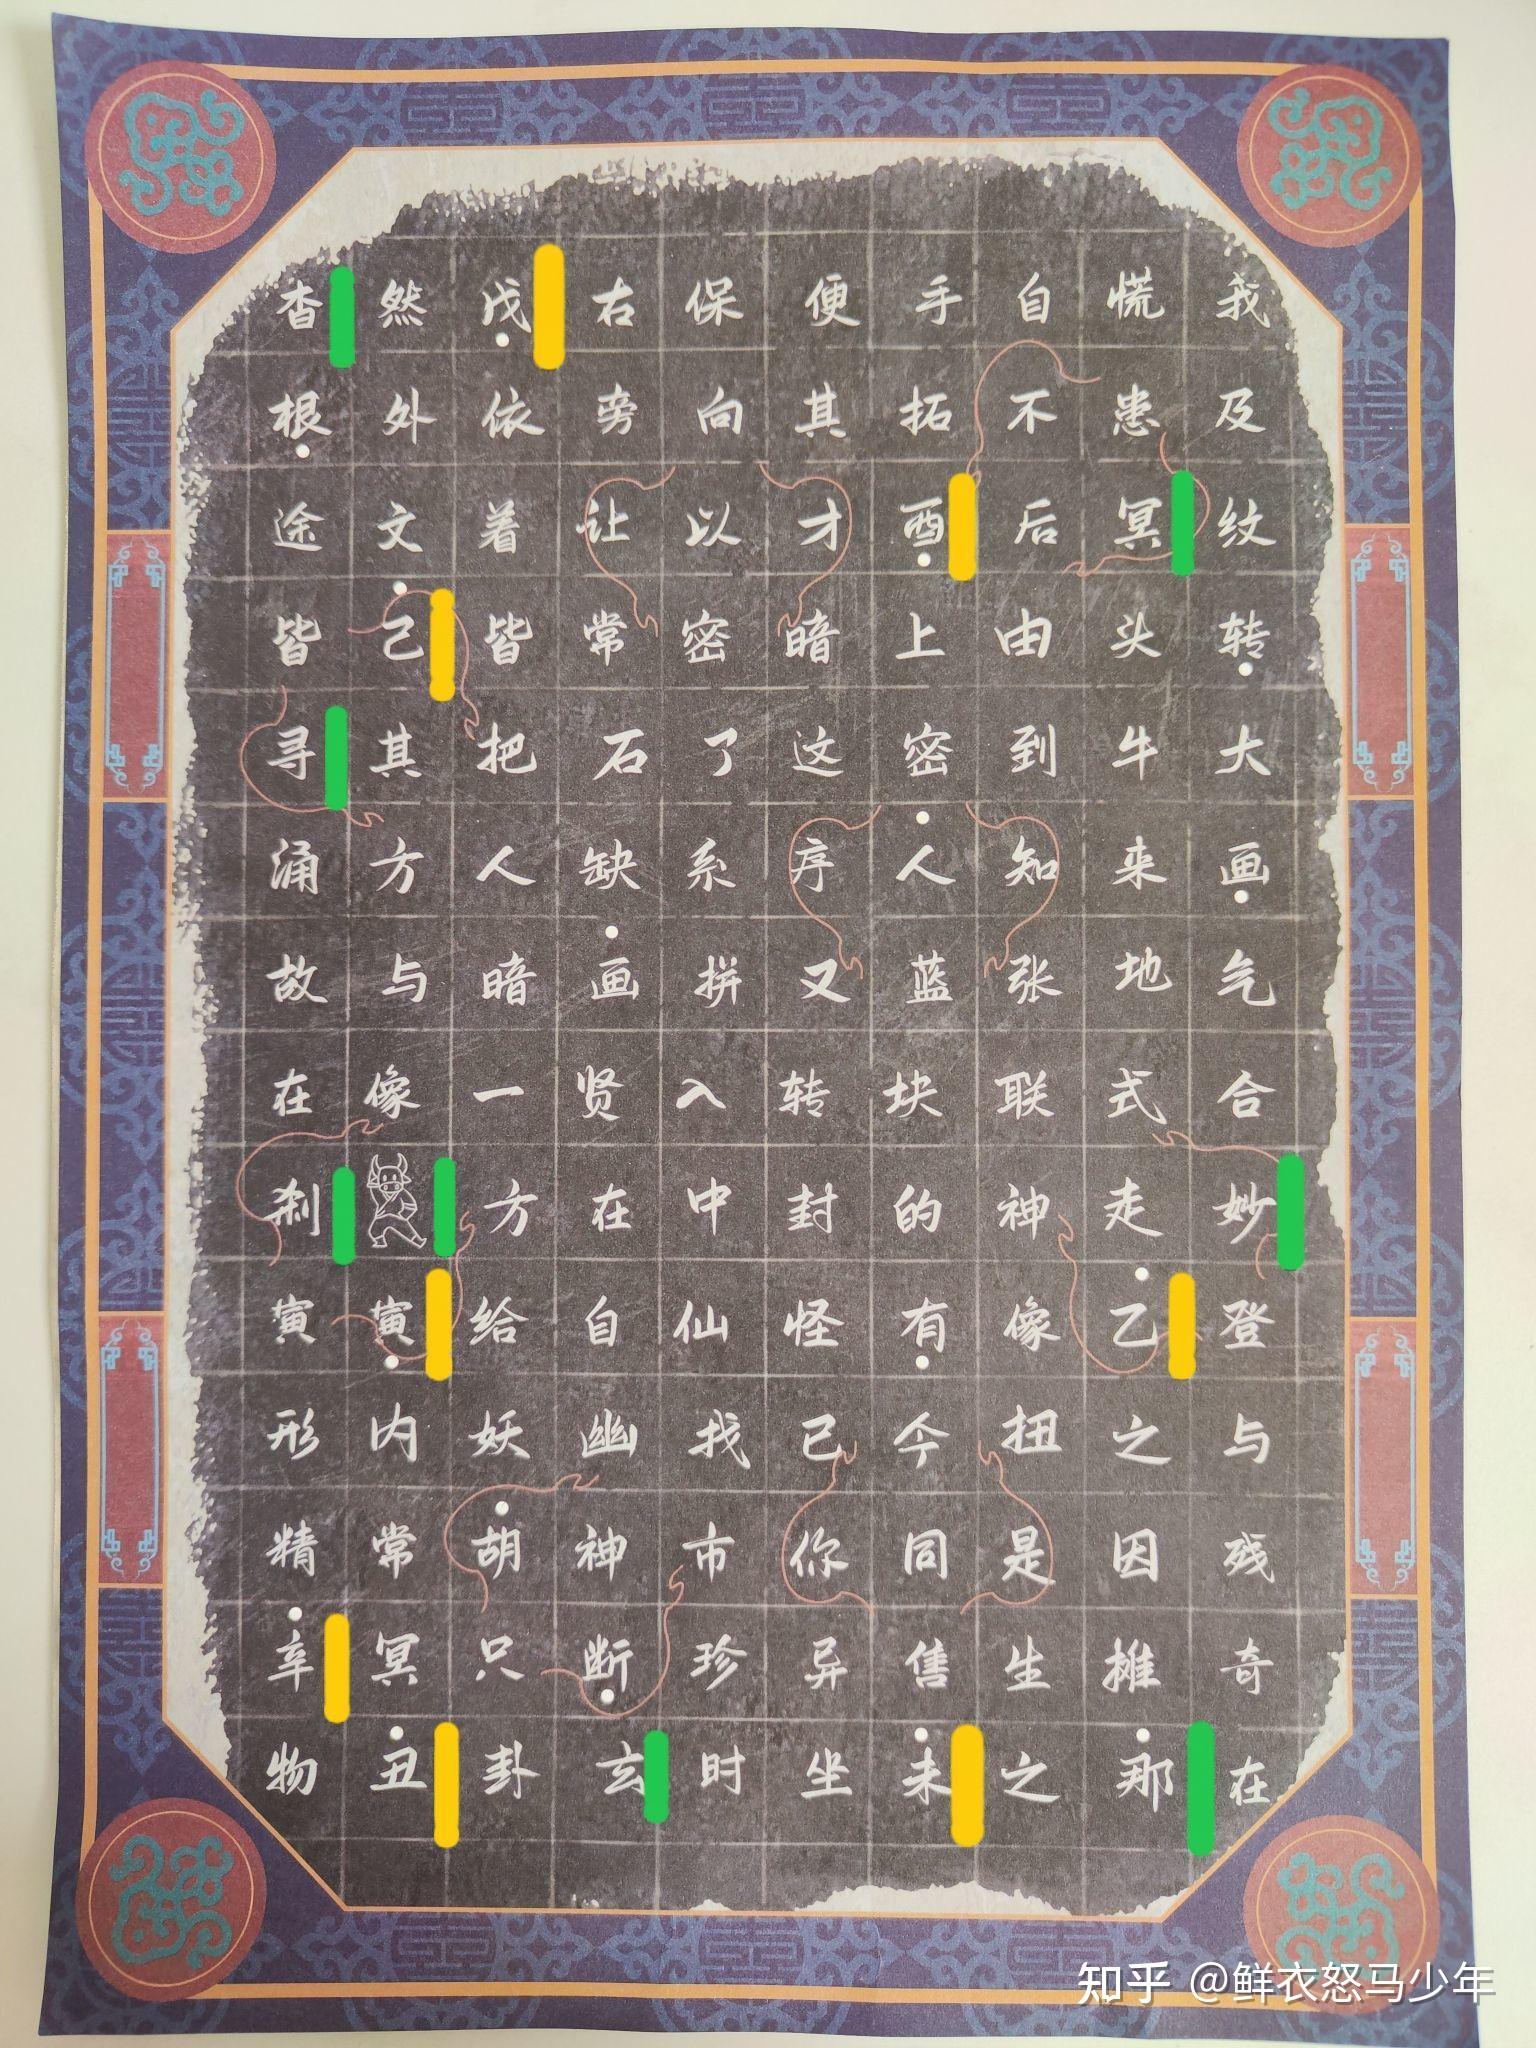 杳然戊右保便手自慌我
根外依旁向其拓不患及
途文着让以才酉后冥纹
皆己皆常密暗上由头转
寻其把石了这密到牛大
涌方人缺系序人知来画
故与暗画拼又蓝张地气
在像一贤入转块联式合
刹方在中封的神走妙
寅寅给自仙怪有像乙登
形内妖幽找已今扭之与
精常胡神市你同是因残
辛冥只断珍异售生摊奇
物丑卦玄时坐未之那在
知乎 @鲜衣怒马少年